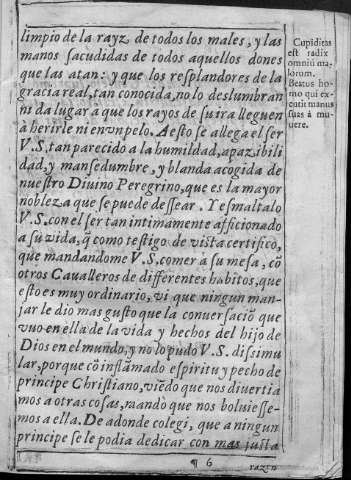 limpio de la rayz de todos los males, y las
manos sacudidas de todos aquellos dones
que las atan: y que los resplandores de la
gracia real, tan conocida, no lo deslumbran
ni da lugar a que los rayos de su ira lleguen
à herirle ni en vn pelo. A esto se allega el ser
V.S. tan parecido a la humildad, apazibili
dad, y mansedumbre, y blanda acogida de
nuestro Diuino Peregrino, que es la mayor
nobleza que se puede dessear. Y esmaltalo
V.S. con el ser tan intimamente afficionado
a su vida, q̃ como testigo de vista certifico,
que mandandome V.S. comer à su mesa, cõ
otros Caualleros de differentes habitos, que
esto es muy ordinario, vi que ningun man-
jar le dio mas gusto que la conuersaciõ que
vuo en ella de la vida y hechos del hijo de
Dios en el mundo, y no lo pudo V.S. dissimu
lar, porque cõ inflãmado espiritu y pecho de
principe Christiano, viẽdo que nos diuertia
mos a otras cosas, mandò que nos boluiesse-
mos a ella. De adonde colegi, que a ningun
principe se le podia dedicar con mas justa
¶ 6
razon
Cupiditas
est radix
omniũ ma-
lorum.
Beatus ho-
mo qui ex-
cutit manus
suas à mu-
nere.